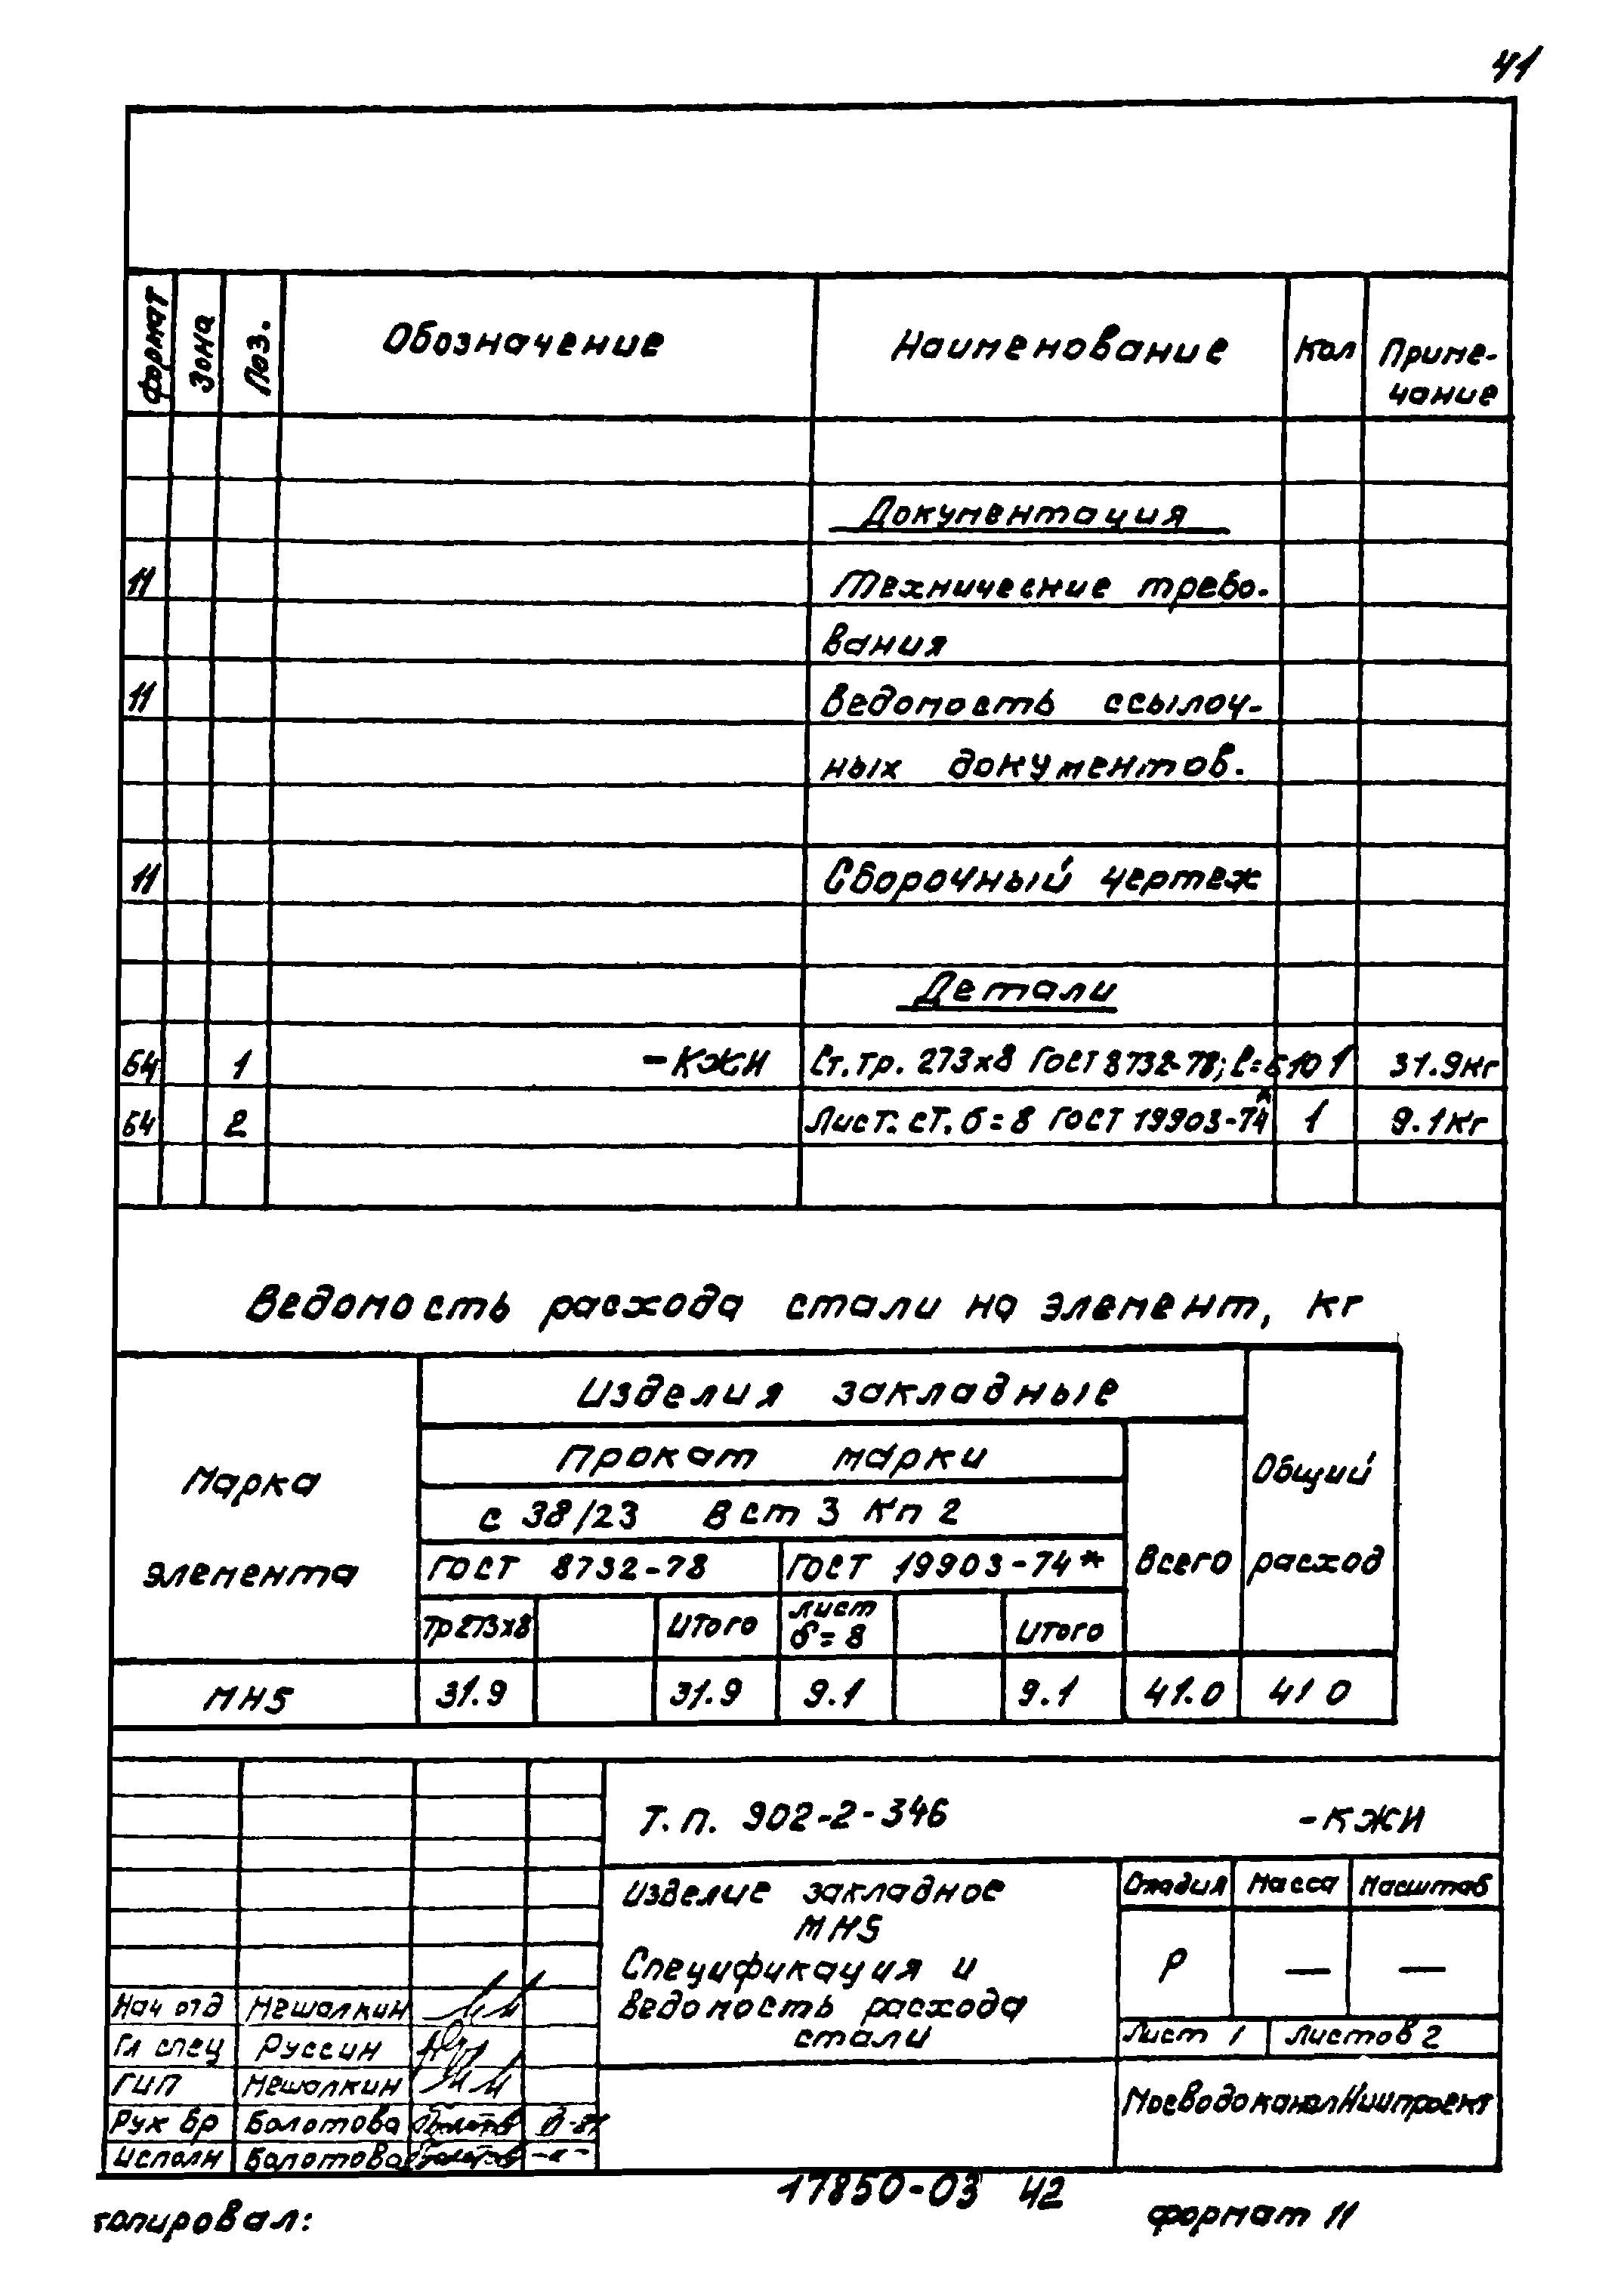 41
Формат Зона Поз. Обозначение Наименование Кол Приме-
чание
Документация
11 Технические требо-
вания
11 Ведомость ссылоч-
ных документов.
11 Сборочный чертеж
Детали
БЧ 1 -КЖИ Ст. тр. 273х8 ГОСТ 8732-78; ℓ=610 1 31.9кг
БЧ 2 Лист. ст. б=8 ГОСТ 19903-74* 1 9.1кг
Ведомость расхода стали на элемент, кг
Марка элемента
Изделия закладные
Прокат марки
с 38/23 Вст3кп2
ГОСТ 8732-78 ГОСТ 19903-74* Всего Общий расход
Тр273х8 Итого лист б=8 Итого
МН5 31.9 31.9 9.1 9.1 41.0 41 0
Т.п. 902-2-346 -КЖИ
Изделие закладное
МН5
Спецификация и
ведомость расхода
стали
Стадия Масса Масштаб
Р — —
Лист 1 Листов 2
МосводоканалНИИпроект
Нач отд Мешалкин
Гл спец Руссин
ГИП Мешалкин
Рук бр Болотова
Исполн Болотова
17850-03 42
копировал: формат 11